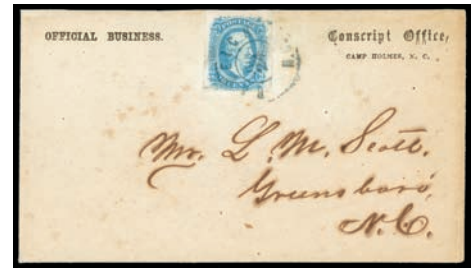 OFFICIAL BUSINESS.
Conscript Office,
CAMP HOLMES, N. C.
Mr. L. M. Scott.
Greensboro,
N.C.